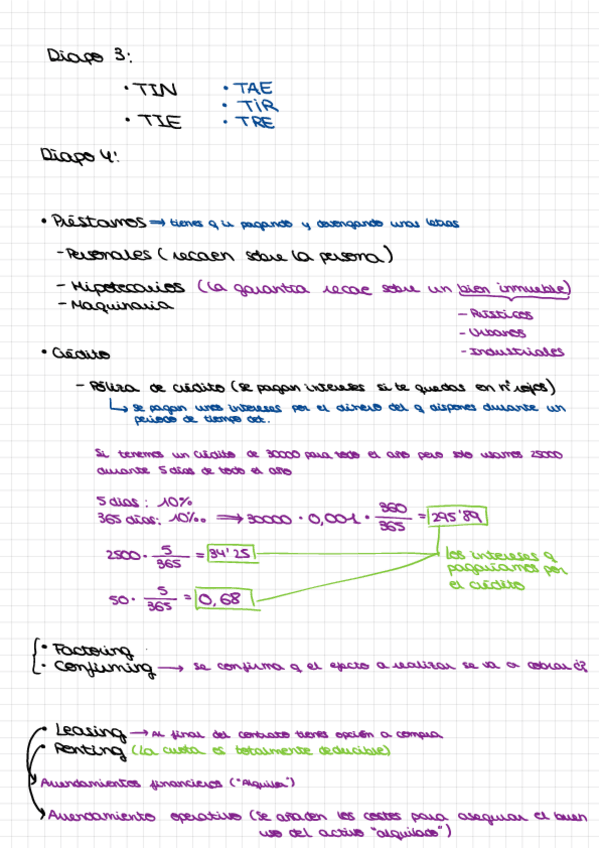 Diapo 3:
• TIN • TAE
• TIR
• TIE • TRE
Diapo 4:
• Préstamos → tienes q ir pagando y devengando unas letras
- Personales (recaen sobre la persona)
- Hipotecarios (La garantía recae sobre un bien inmueble)
- Maquinaria
- Rústicos
- Urbanos
- Industriales
• Crédito
- Póliza de crédito (se pagan intereses si te quedas en nºrojos)
↳ se pagan unos intereses por el dinero del q dispones durante un
periodo de tiempo det.
Si tenemos un crédito de 30000 para todo el año pero solo usamos 25000
durante 5 días de todo el año
5 días: 10%
365 días: 10‰ ⟹ 30000 · 0,001 · 360/365 = 295'89
2500 · 5/365 = 34'25
Los intereses q
pagaríamos por
el crédito
50 · 5/365 = 0,68
• Factoring
• Confirming → se confirma q el efecto a realizar se va a cobrar
• Leasing → Al final del contrato tienes opción a compra
• Renting (La cuota es totalmente deducible)
Arrendamientos financieros ("Alquiler")
Arrendamiento operativo (se añaden los costes para asegurar el buen
uso del activo "alquilado")